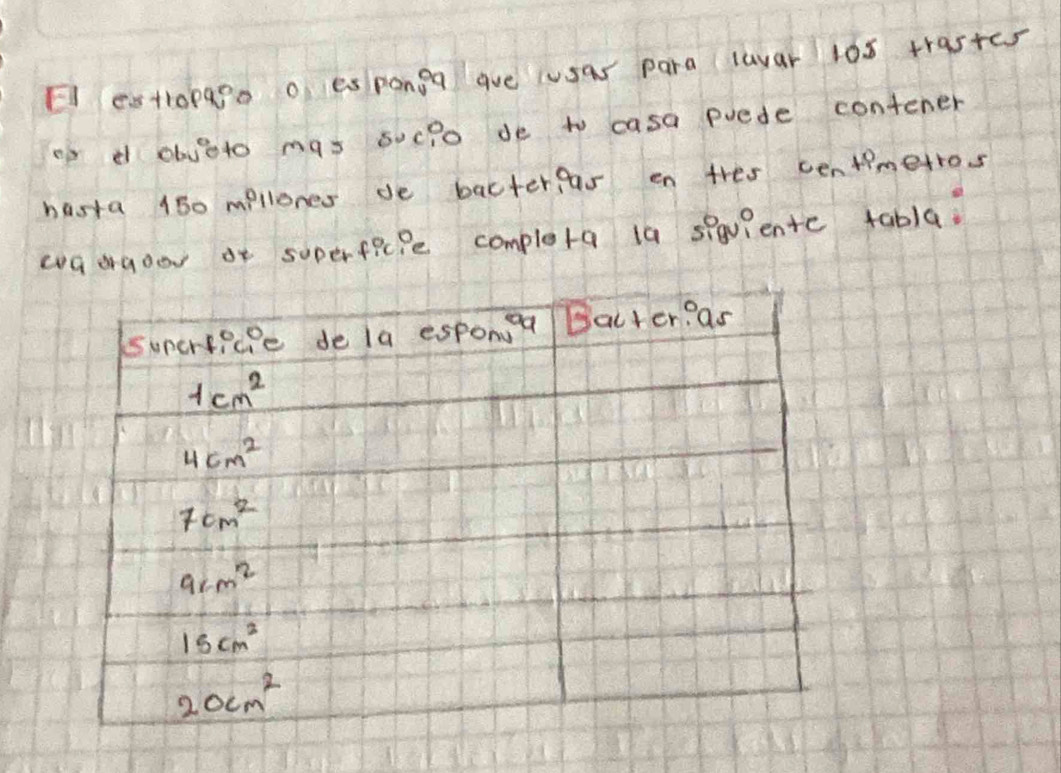 El estropajo o esponja que usas para lavar los trastes
es el objeto mas sucio de tu casa puede contener
hasta 150 millones de bacterias en tres centimetros
cuadrados de superficie completa la siguiente tabla:
Superficie de la esponja Bacterias
1cm²
4cm²
7cm²
9cm²
15cm²
20cm²